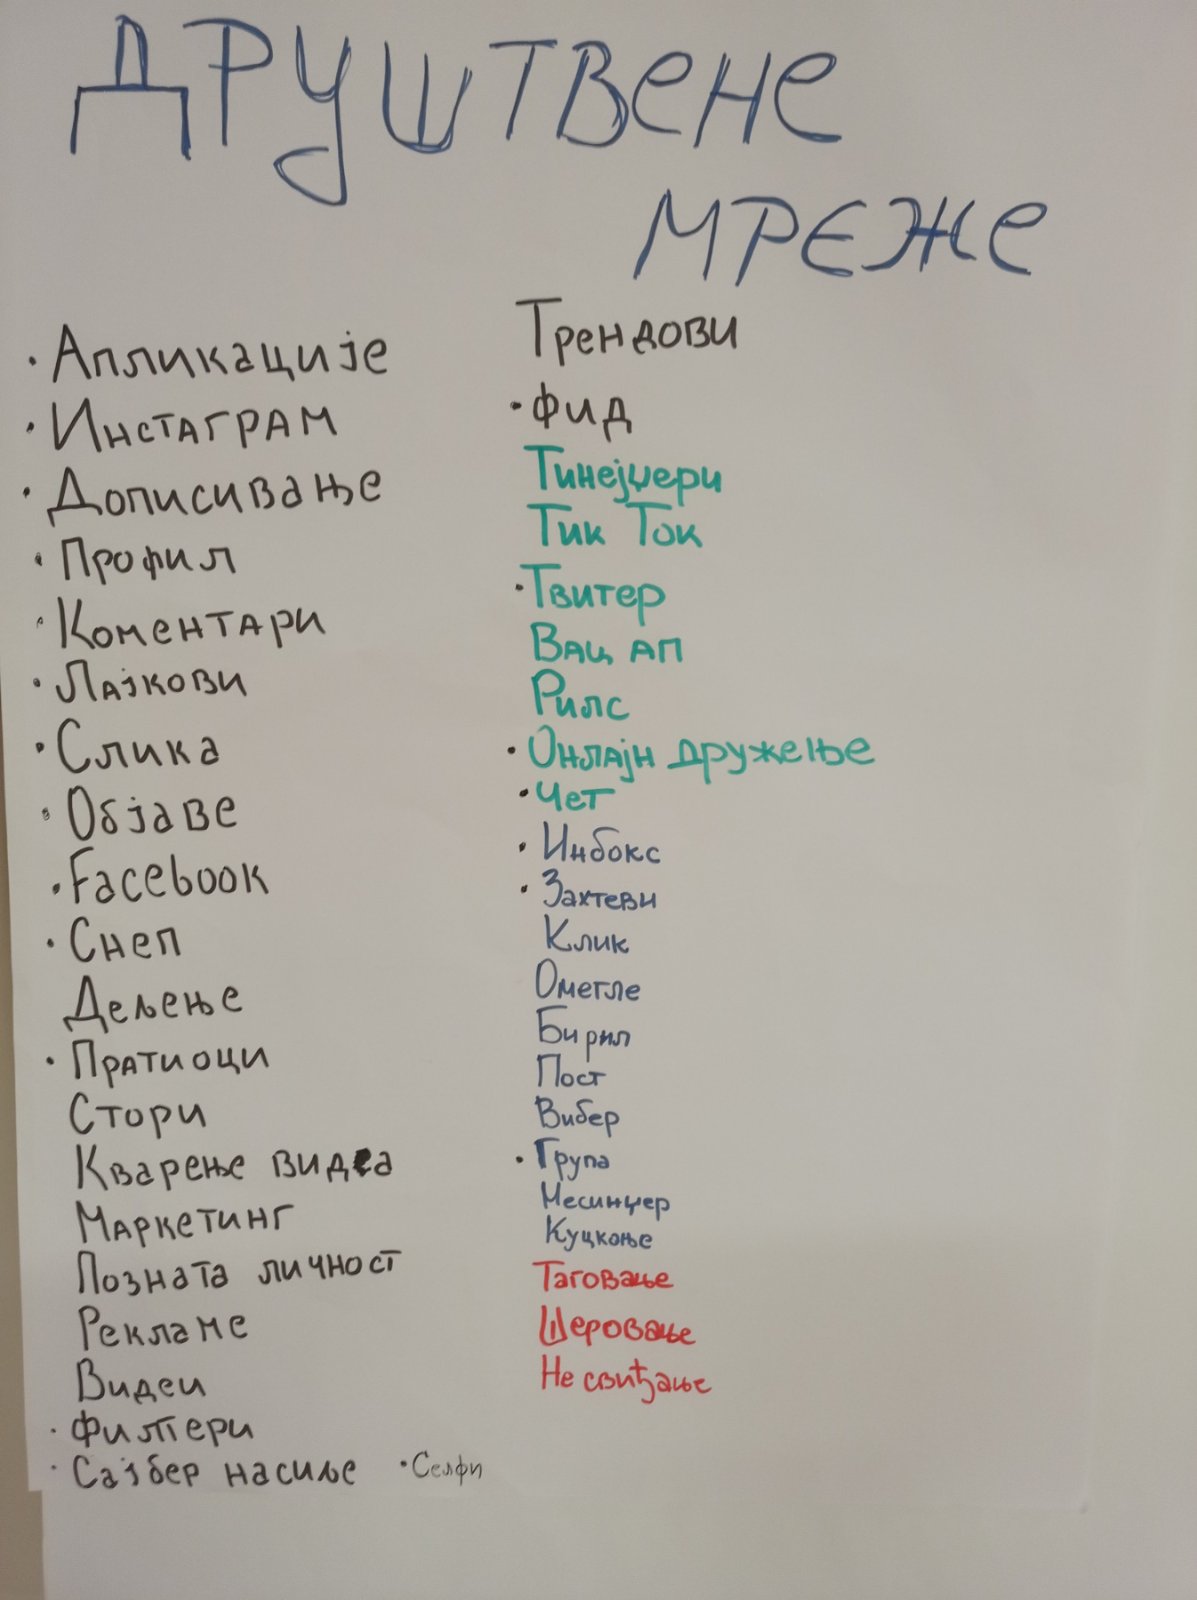 ДРУШТВЕНЕ
МРЕЖЕ
• Апликације
• Инстаграм
• Дописивање
• Профил
• Коментари
• Лајкови
• Слика
• Објаве
• Facebook
• Снеп
Дељење
• Пратиоци
Стори
Кварење видеа
Маркетинг
Позната личност
Рекламе
Видеи
• Филтери
• Сајбер насиље
• Селфи
Трендови
• Фид
Тинејџери
Тик Ток
• Твитер
Вац ап
Рилс
• Онлајн дружење
• Чет
• Инбокс
• Захтеви
Клик
Омегле
Бирил
Пост
Вибер
• Група
Месинџер
Куцкање
Таговање
Шеровање
Не свиђање